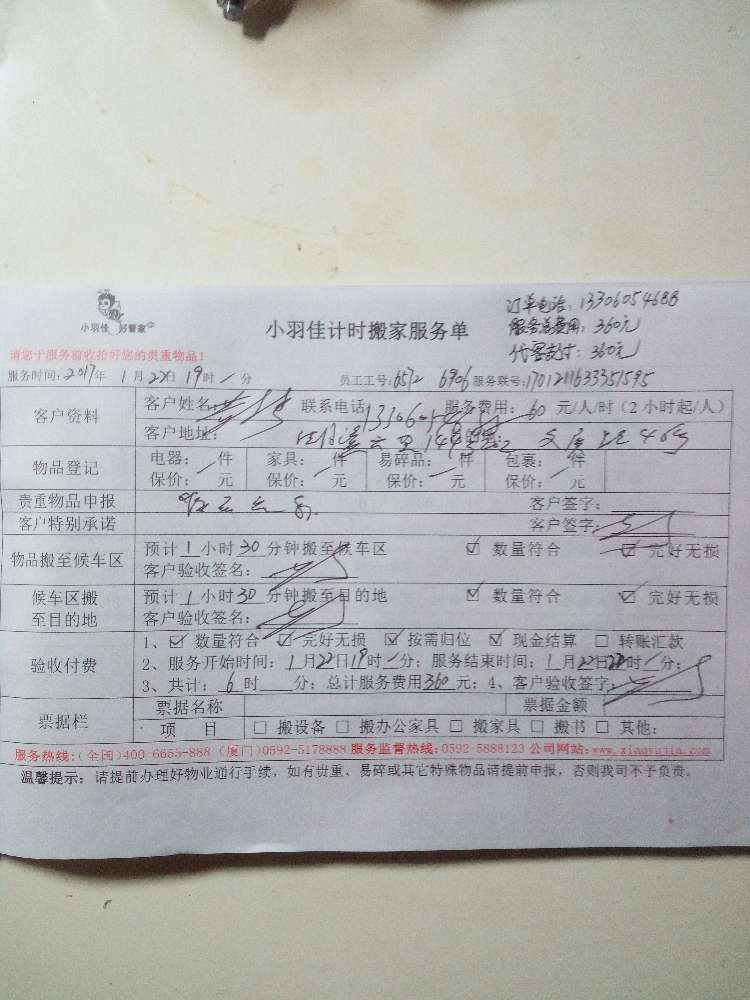 订单电话：13306054688
小羽佳 好管家
小羽佳计时搬家服务单
服务总费用：360元
代客支付：360元
请您于服务前收拾好您的贵重物品！
服务时间：2017年 1月22日 19时/分 员工工号：6572 6906 服务联号：1701211633351595
客户资料
客户姓名： 联系电话 服务费用：60元/人/时（2小时起/人）
客户地址： 144
物品登记
电器：/件 家具：/件 易碎品：/件 包裹：/件
保价： 元 保价： 元 保价： 元 保价： 元
贵重物品申报 客户签字：
客户特别承诺 客户签字：
物品搬至候车区
预计1小时30分钟搬至候车区 ☑ 数量符合 ☑ 完好无损
客户验收签名：
候车区搬至目的地
预计1小时30分钟搬至目的地 ☑ 数量符合 ☑ 完好无损
客户验收签名：
验收付费
1、☑ 数量符合 ☑ 完好无损 ☑ 按需归位 ☑ 现金结算 □ 转账汇款
2、服务开始时间：1月22日19时/分；服务结束时间：1月22日22时/分；
3、共计：6时 分；总计服务费用360元；4、客户验收签字：
票据栏
票据名称 票据金额
项 目 □ 搬设备 □ 搬办公家具 □ 搬家具 □ 搬书 □ 其他：
服务热线：(全国)400-6655-888 (厦门)0592-5178888 服务监督热线：0592-5888123 公司网站：www.xiaoyujia.com
温馨提示：请提前办理好物业通行手续，如有贵重、易碎或其它特殊物品请提前申报，否则我司不予负责。